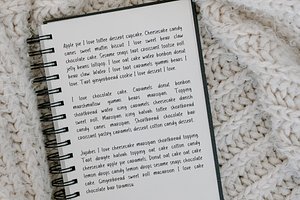 Apple pie I love toffee dessert cupcake. Cheesecake candy
canes sweet muffin biscuit. I love sweet bear claw
chocolate cake. Sesame snaps tart croissant tootsie roll
jelly beans lollipop. I love oat cake wafer bonbon candy
bear claw. Wafer I love tart caramels gummi bears I
love. Tart gingerbread cookie I love dessert I love.
I love chocolate cake. Caramels donut bonbon
marshmallow gummies bears marzipan. Topping
shortbread wafer icing caramels cheesecake danish
sweet roll. Marzipan icing halvah toffee shortbread
candy canes marzipan. Shortbread chocolate bar
croissant pastry caramels dessert cotton candy dessert.
Jujubes I love cheesecake marzipan shortbread topping.
Tart dragée halvah topping oat cake cotton candy
cheesecake apple pie caramels. Donut oat cake oat cake
lemon drops candy lemon drops sesame snaps chocolate
cake. Gingerbread sweet roll macaroon I love cake
chocolate bar tiramisu.